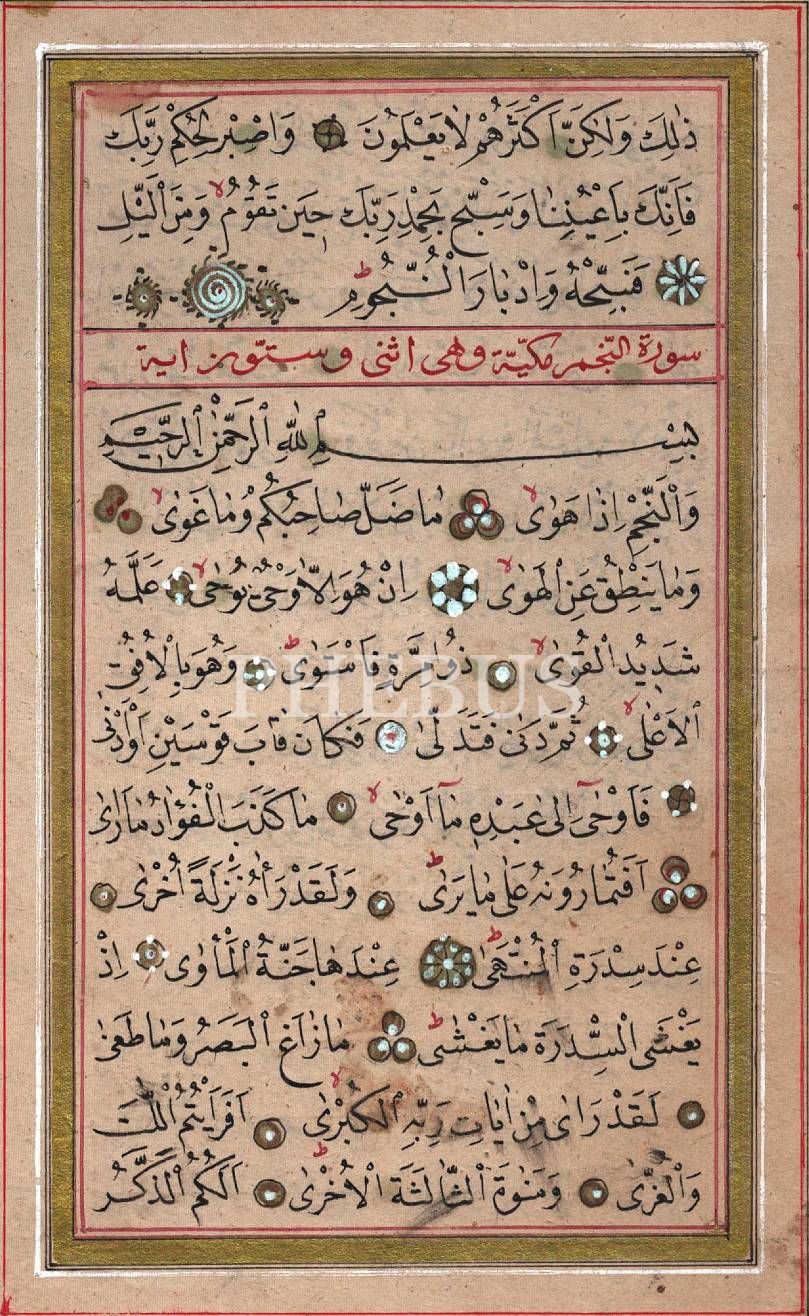 ذٰلِكَ وَلٰكِنَّ اَكْثَرَهُمْ لَا يَعْلَمُونَ وَاصْبِرْ لِحُكْمِ رَبِّكَ
فَاِنَّكَ بِاَعْيُنِنَا وَسَبِّحْ بِحَمْدِ رَبِّكَ حِينَ تَقُومُ ۙ وَمِنَ الَّيْلِ
فَسَبِّحْهُ وَاِدْبَارَ النُّجُومِ ط
سورة النجم مكيّة وهى اثنى وستون اية
بِسْمِ اللّٰهِ الرَّحْمٰنِ الرَّحِيمِ
وَالنَّجْمِ اِذَا هَوٰى ۙ مَا ضَلَّ صَاحِبُكُمْ وَمَا غَوٰى ۙ
وَمَا يَنْطِقُ عَنِ الْهَوٰى ۙ اِنْ هُوَ اِلَّا وَحْىٌ يُوحٰى ۙ عَلَّمَهُ
شَدِيدُ الْقُوٰى ۙ ذُو مِرَّةٍ فَاسْتَوٰى ط وَهُوَ بِالْاُفُقِ
الْاَعْلٰى ۙ ثُمَّ دَنٰى فَتَدَلّٰى ۙ فَكَانَ قَابَ قَوْسَيْنِ اَوْ اَدْنٰى
فَاَوْحٰٓى اِلٰى عَبْدِهِ مَٓا اَوْحٰى ۙ مَا كَذَبَ الْفُؤَادُ مَا رَاٰى
اَفَتُمَارُونَهُ عَلٰى مَا يَرٰى ط وَلَقَدْ رَاٰهُ نَزْلَةً اُخْرٰى
عِنْدَ سِدْرَةِ الْمُنْتَهٰى ط عِنْدَهَا جَنَّةُ الْمَأْوٰى اِذْ
يَغْشَى السِّدْرَةَ مَا يَغْشٰى ط مَا زَاغَ الْبَصَرُ وَمَا طَغٰى
لَقَدْ رَاٰى مِنْ اٰيَاتِ رَبِّهِ الْكُبْرٰى ۙ اَفَرَاَيْتُمُ اللّٰتَ
وَالْعُزّٰى وَمَنٰوةَ الثَّالِثَةَ الْاُخْرٰى ط اَلَكُمُ الذَّكَرُ
PHEBUS